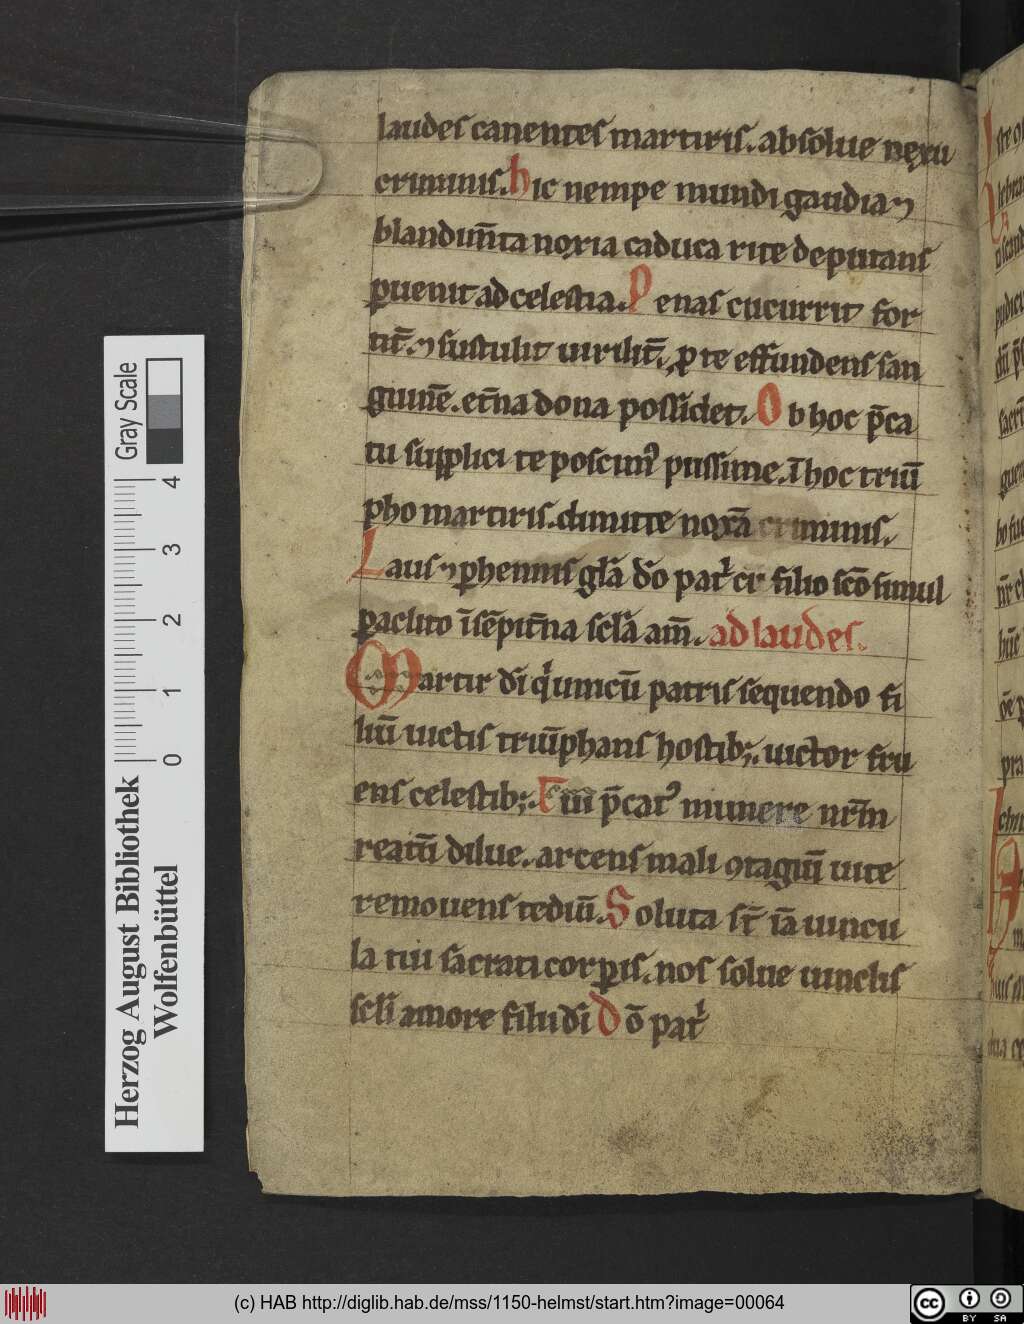 laudes canentes martiris. absolue nexu
criminis. hic nempe mundi gaudia ⁊
blandim̄ta noxia caduca rite deputans
ꝑuenit ad celestia. Penas cucurrit for
tit̄. ⁊ sustulit uirilit̄. ꝓ te effundens san
guinē. et̄na dona possidet. Ob hoc p̄ca
tu supplici te poscimꝰ piissime. ī hoc triū
pho martiris. dimitte noxā criminis.
Laus ⁊ ꝑhennis gl̄a dō patͥ cū filio sc̄o simul
paclito ī sēpit̄na scl̄a am̄. ad laudes.
Martir dī qͥ unicū patris sequendo fi
liū uictis triūphans hostibꝫ. uictor fru
ens celestibꝫ. Tui p̄catꝰ munere nrm̄
reatū dilue. arcens mali ꝯtagiū uite
remouens tediū. Soluta st̄ iā uincu
la tui sacrati corꝑis. nos solue uinclis
scl̄i amore filii dī Dō patͥ
Herzog August Bibliothek
Wolfenbüttel
0 1 2 3 4
Gray Scale
(c) HAB http://diglib.hab.de/mss/1150-helmst/start.htm?image=00064
cc BY SA